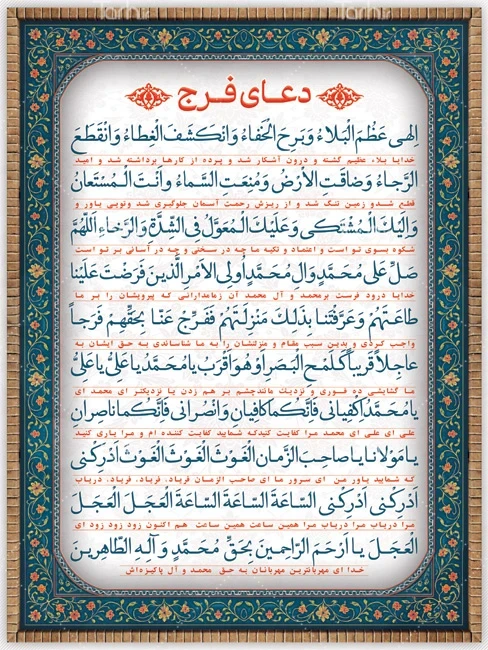 دعای فرج
اِلهی عَظُمَ الْبَلاءُ وَبَرِحَ الْخَفاءُ وَانْكَشَفَ الْغِطاءُ وَانْقَطَعَ
خدایا بلاء عظیم گشته و درون آشکار شد و پرده از کارها برداشته شد و امید
الرَّجاءُ وَضاقَتِ الاَرْضُ وَمُنِعَتِ السَّماءُ وَاَنْتَ الْمُسْتَعانُ
قطع شد و زمین تنگ شد و از ریزش رحمت آسمان جلوگیری شد و تویی یاور و
وَاِلَيْكَ الْمُشْتَكى وَعَلَيْكَ الْمُعَوَّلُ فِى الشِّدَّةِ وَالرَّخاءِ اَللّهُمَّ
شکوه بسوی تو است و اعتماد و تکیه ما چه در سختی و چه در آسانی بر تو است
صَلِّ عَلى مُحَمَّدٍ وَالِ مُحَمَّدٍ اُولِى الاَمْرِ الَّذينَ فَرَضْتَ عَلَيْنا
خدایا درود فرست بر محمد و آل محمد آن زمامدارانی که پیرویشان را بر ما
طاعَتَهُمْ وَعَرَّفْتَنا بِذلِكَ مَنْزِلَتَهُمْ فَفَرِّجْ عَنّا بِحَقِّهِمْ فَرَجاً
واجب کردی و بدین سبب مقام و منزلتشان را به ما شناساندی به حق ایشان به
عاجِلاً قَريباً كَلَمْحِ الْبَصَرِ اَوْ هُوَ اَقْرَبُ يا مُحَمَّدُ يا عَلِىُّ يا عَلِىُّ
ما گشایشی ده فوری و نزدیک مانند چشم بر هم زدن یا نزدیکتر ای محمد ای
يا مُحَمَّدُ اِكْفِيانى فَاِنَّكُما كافِيانِ وَانْصُرانى فَاِنَّكُما ناصِرانِ
علی ای علی ای محمد مرا کفایت کنید که شمایید کفایت کننده ام و مرا یاری کنید
يا مَوْلانا يا صاحِبَ الزَّمانِ الْغَوْثَ الْغَوْثَ الْغَوْثَ اَدْرِكْنى
که شمایید یاور من ای سرور ما ای صاحب الزمان فریاد، فریاد، فریاد، دریاب
اَدْرِكْنى اَدْرِكْنى السّاعَةَ السّاعَةَ السّاعَةَ الْعَجَلَ الْعَجَلَ
مرا دریاب مرا دریاب مرا همین ساعت همین ساعت هم اکنون زود زود زود ای
الْعَجَلَ يا اَرْحَمَ الرّاحِمينَ بِحَقِّ مُحَمَّدٍ وَآلِهِ الطّاهِرينَ
خدا ای مهربانترین مهربانان به حق محمد و آل پاکیزه‌اش